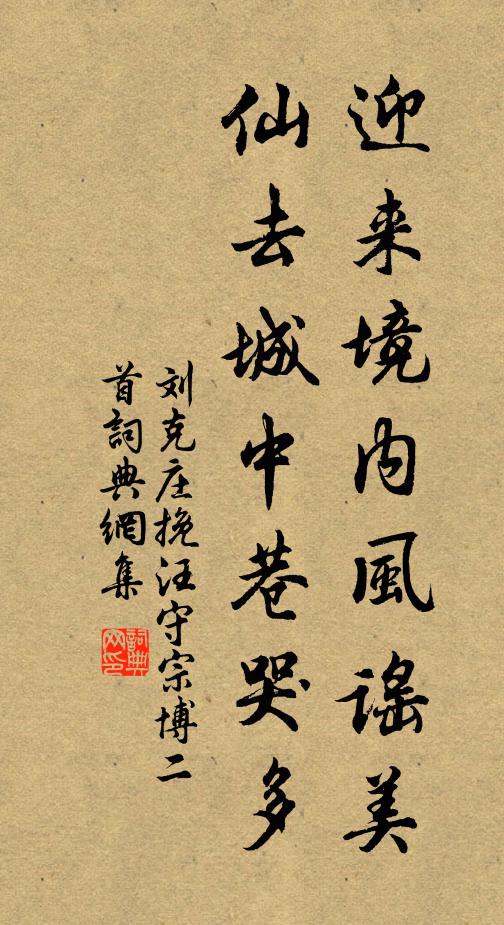 迎来境内風謠美
仙去城中巷哭多
刘克庄挽汪守宗博二
首詞典網集
詞典网印